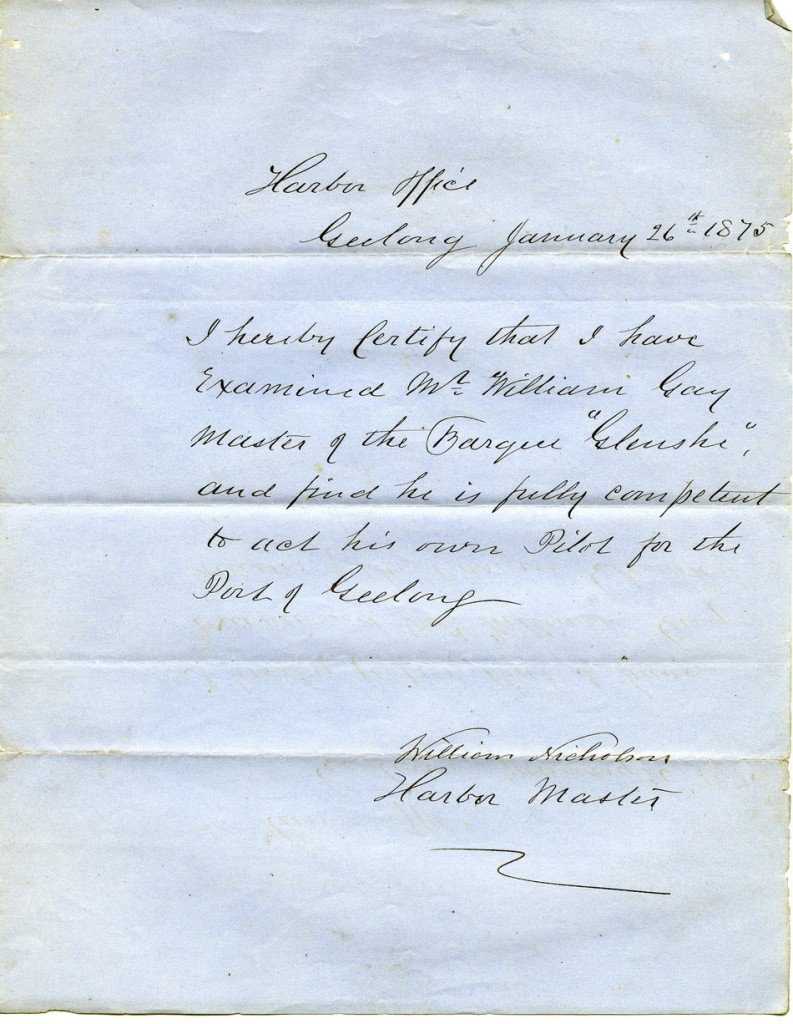 Harbor Office
Geelong January 26th 1875
I hereby Certify that I have
Examined Mr. William Gay
Master of the Barque "Glenshe",
and find he is fully competent
to act his own Pilot for the
Port of Geelong
William Nicholson
Harbor Master